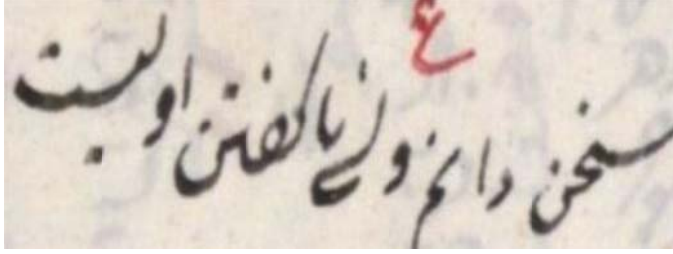 ع
سخن دانم ولی ناکفتن اولیست